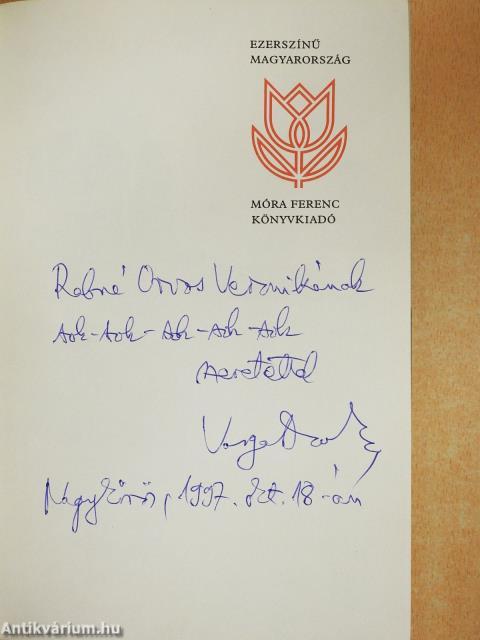 EZERSZÍNŰ
MAGYARORSZÁG
MÓRA FERENC
KÖNYVKIADÓ
Rabné Orvos Veronikának
sok-sok-sok-sok-sok
szeretettel
Varga
Nagykőrös, 1997. okt. 18-án
Antikvárium.hu